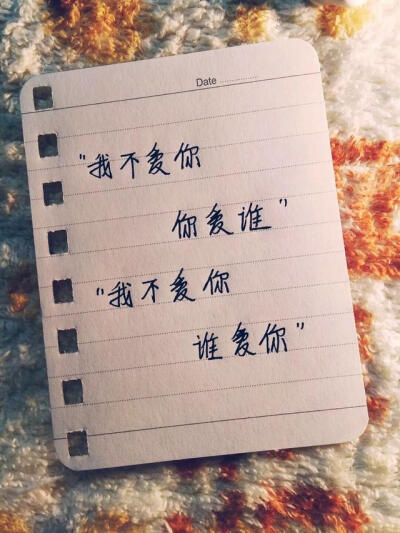 Date
"我不爱你
你爱谁"
"我不爱你
谁爱你"